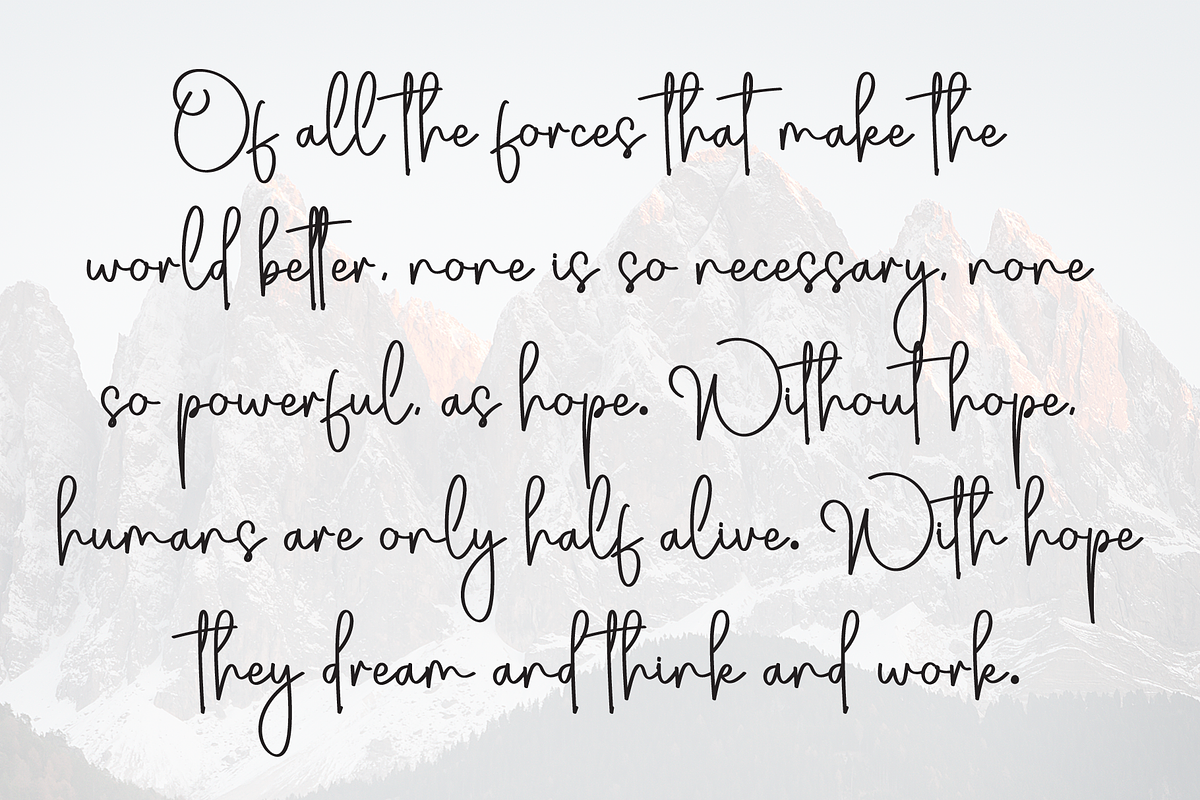 Of all the forces that make the
world better, none is so necessary, none
so powerful, as hope. Without hope,
humans are only half alive. With hope
they dream and think and work.